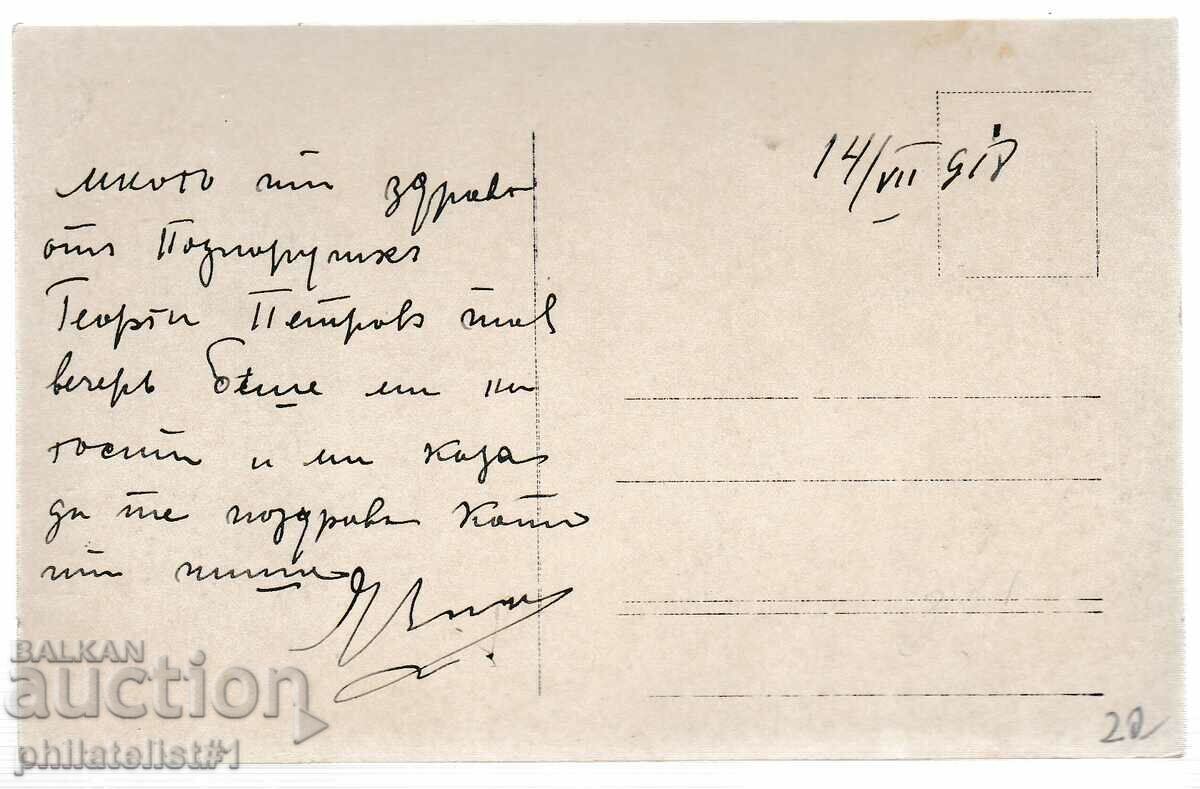 14/VII 918
много ти здраве
отъ Подпоручикъ
Георги Петровъ тая
вечерь беше ми на
гости и ми каза
да те поздравя като
ти пиша
BALKAN
auction
philatelist#1
28